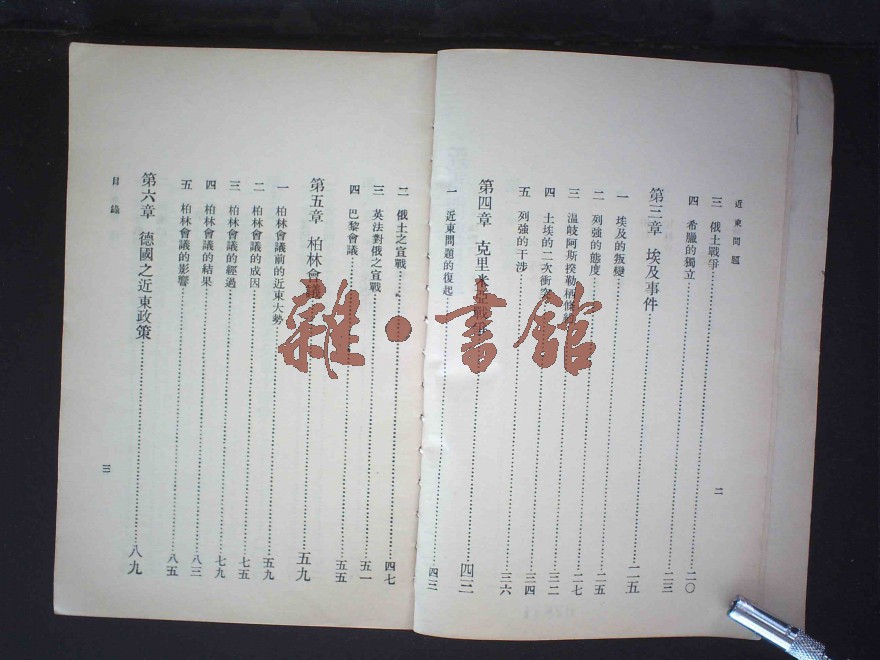 近東問題
三 俄土戰爭……二〇
四 希臘的獨立……二三
第三章 埃及事件……二五
一 埃及的叛變……二五
二 列強的態度……二五
三 溫岐阿斯揆勒栖條約……二七
四 土埃的二次衝突……三二
五 列強的干涉……三四
第四章 克里米亞戰爭……四三
一 近東問題的復起……四三
二
二 俄土之宣戰……四七
三 英法對俄之宣戰……五一
四 巴黎會議……五五
第五章 柏林會議……五九
一 柏林會議前的近東大勢……五九
二 柏林會議的成因……七五
三 柏林會議的經過……七九
四 柏林會議的結果……八三
五 柏林會議的影響……八五
第六章 德國之近東政策……八九
目錄
三
雜·書館